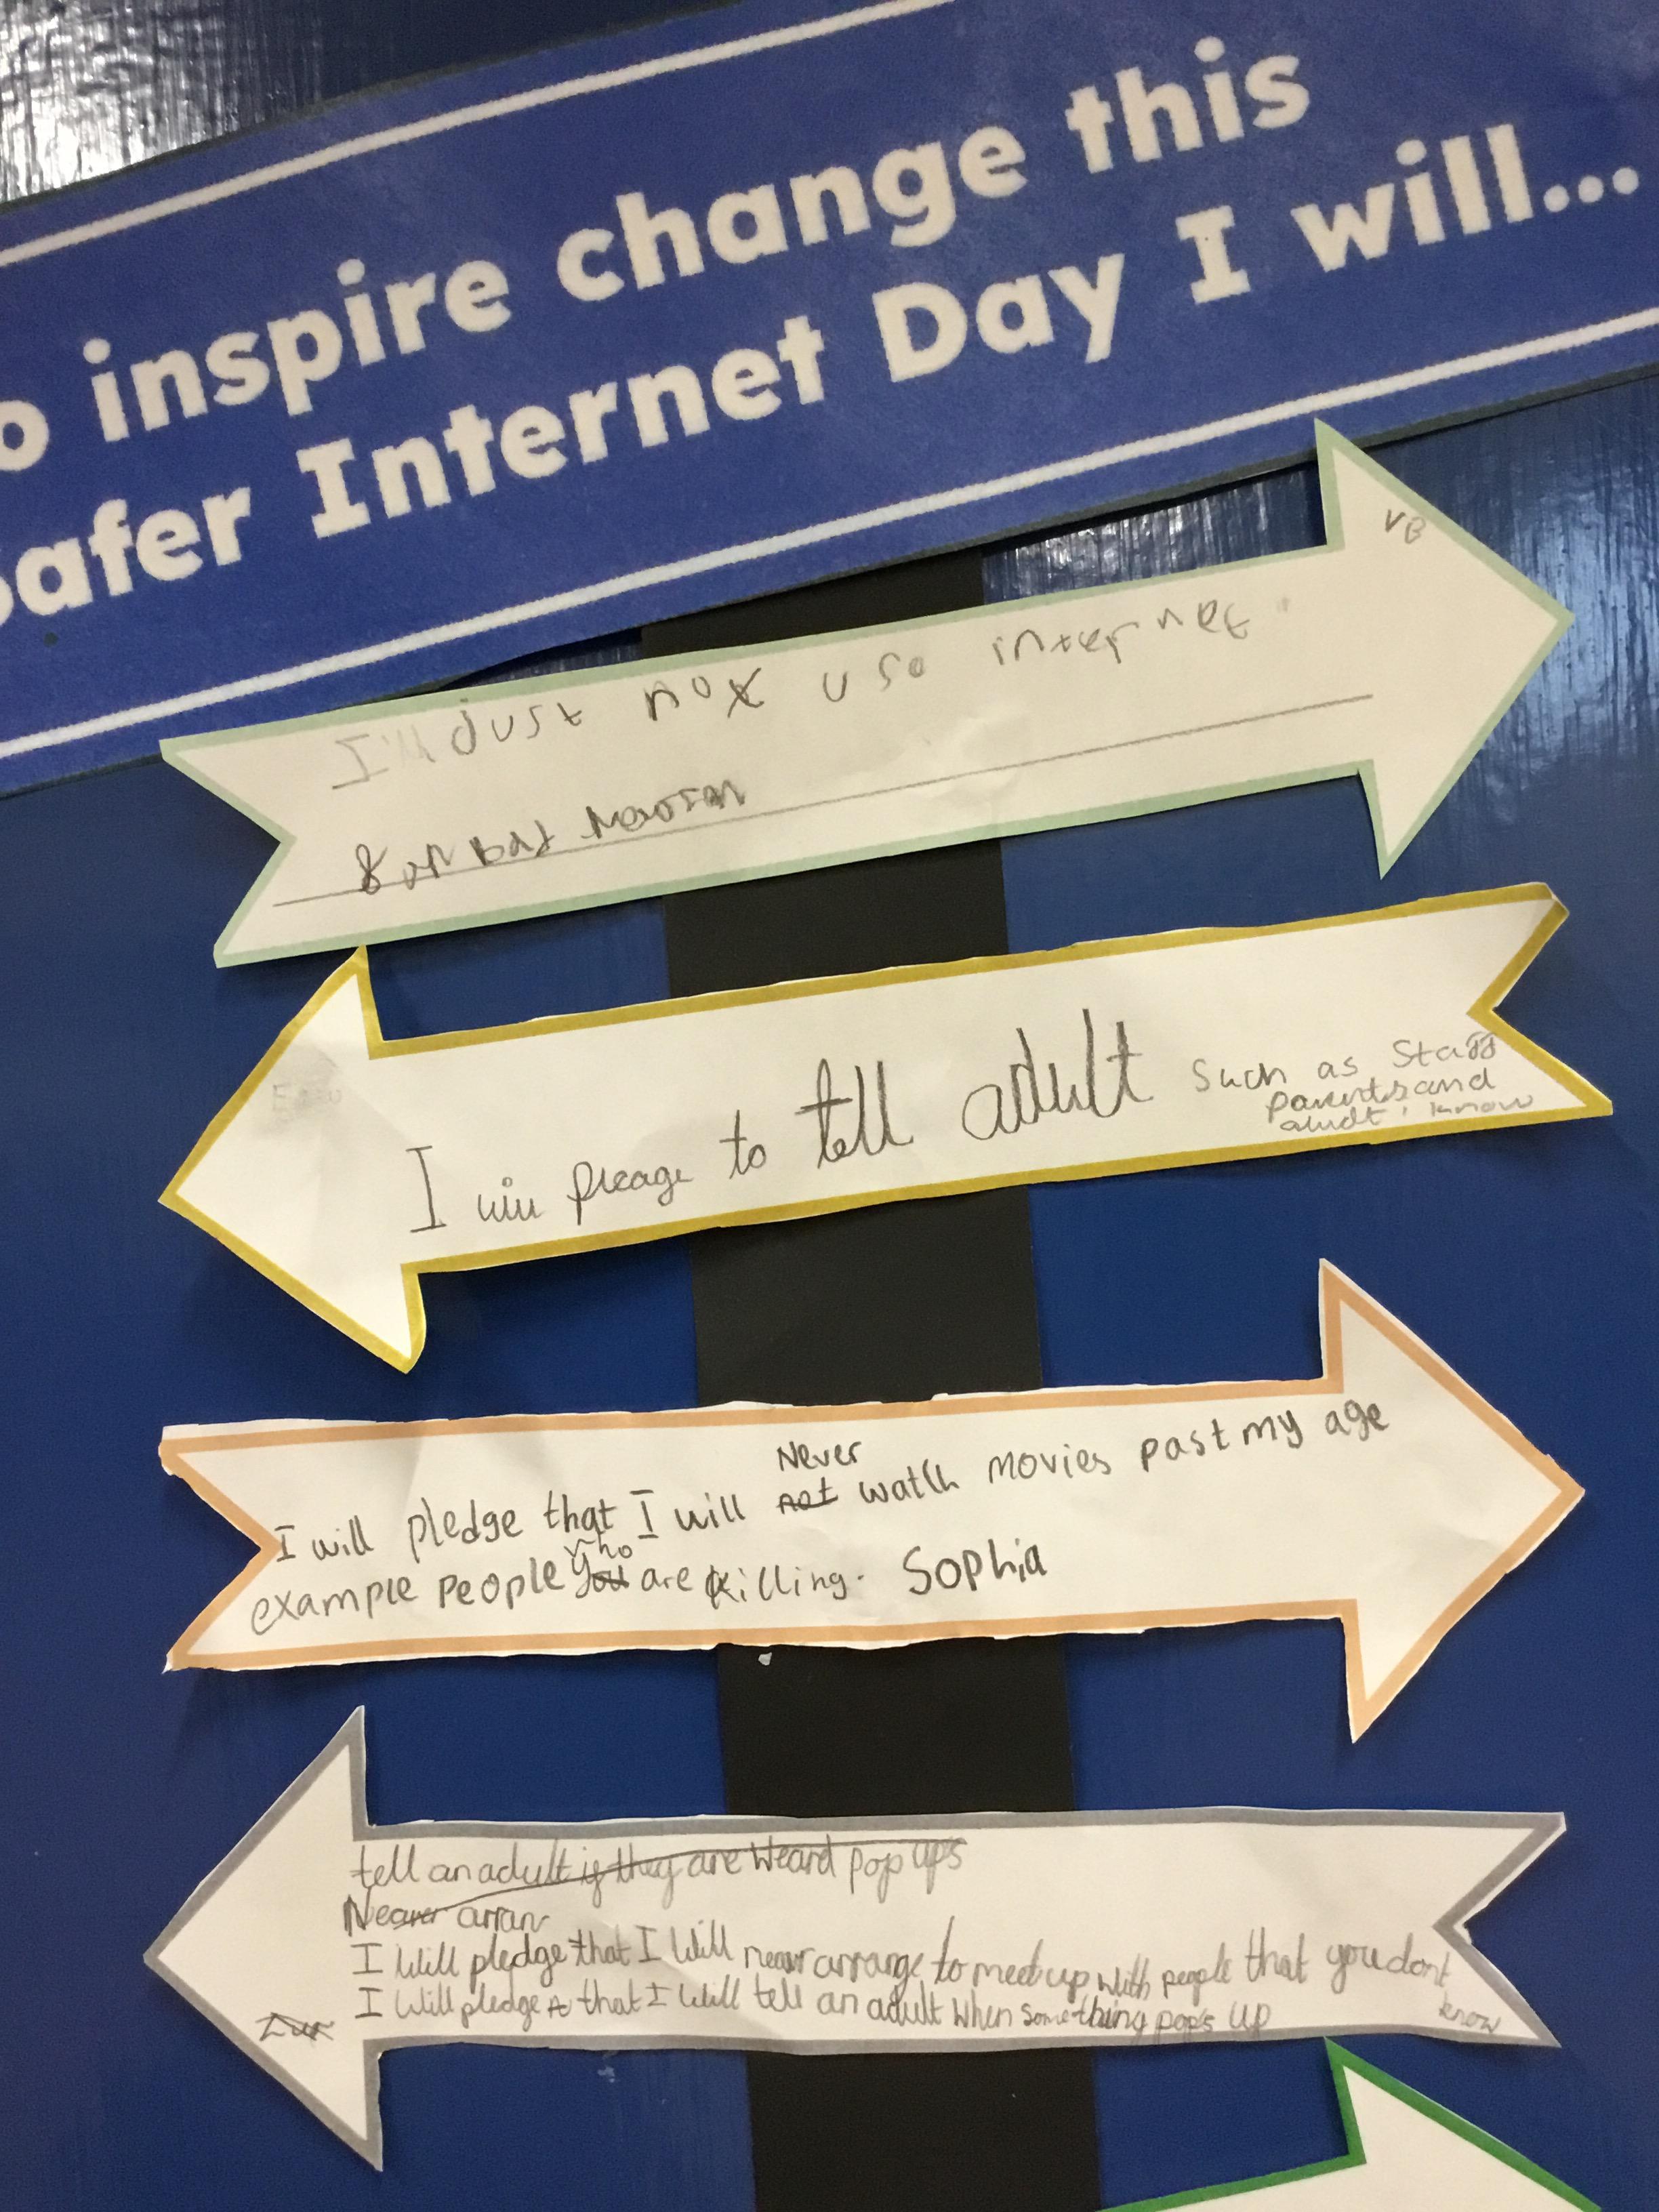 o inspire change this
Safer Internet Day I will...
VB
I'll just not uso internet.
for bad
I will pleage to tell adult such as Staff
parents and
know
Never
I will pledge that I will not watch movies past my age
who
example people you are killing. Sophia
tell an adult if they are weard pop ups
Neaver arran
I will pledge that I will neaver arrange to meet up with people that you dont
know
I will pledge that I will tell an adult when something pop's up